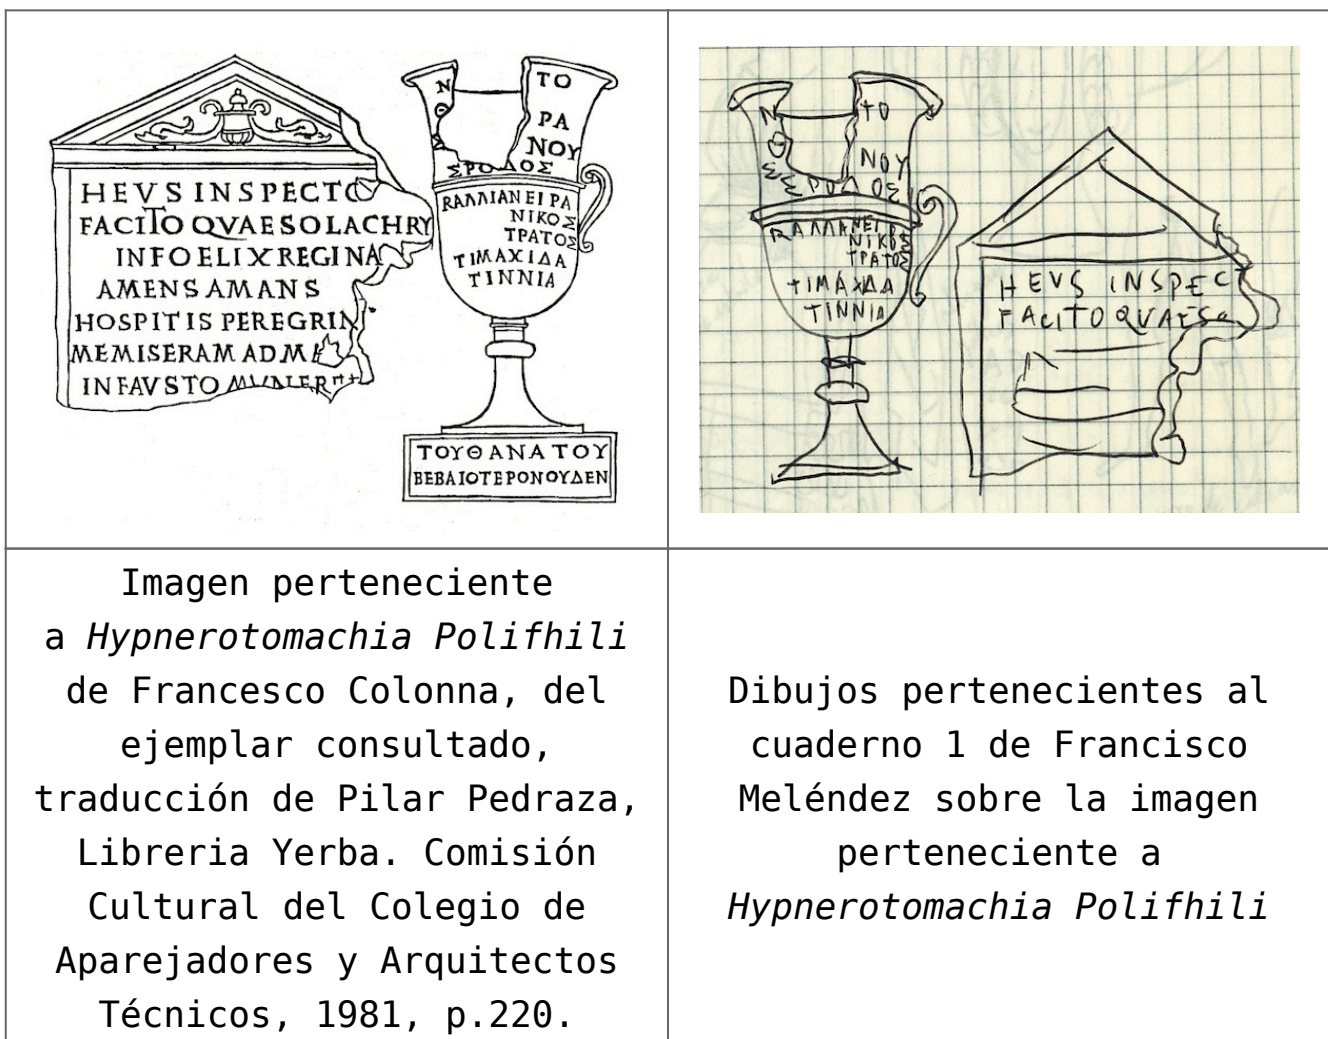 HEVS INSPECTO
FACITO QVAESO LACHRY
INFOELIX REGINA
AMENS AMANS
HOSPITIS PEREGRIN
MEMISERAM AD ME
INFAVSTO MVNER
Ν ΤΟ
Θ ΡΑ
ΝΟΥ
ΣΡΟ ΛΟΣ
ΡΑΛΛΙΑΝΕΙΡΑ
ΝΙΚΟΣ
ΤΡΑΤΟΣ
ΤΙΜΑΧΙΔΑ
ΤΙΝΝΙΑ
ΤΟΥΘΑΝΑΤΟΥ
ΒΕΒΑΙΟΤΕΡΟΝΟΥΔΕΝ
Ν ΤΟ
ΝΟΥ
ΝΙΚΟΣ
ΤΡΑΤΟΣ
ΤΙΜΑΧΙΔΑ
ΤΙΝΝΙΑ
HEVS INSPEC
FACITO QVAESO
Imagen perteneciente
a Hypnerotomachia Polifhili
de Francesco Colonna, del
ejemplar consultado,
traducción de Pilar Pedraza,
Libreria Yerba. Comisión
Cultural del Colegio de
Aparejadores y Arquitectos
Técnicos, 1981, p.220.
Dibujos pertenecientes al
cuaderno 1 de Francisco
Meléndez sobre la imagen
perteneciente a
Hypnerotomachia Polifhili